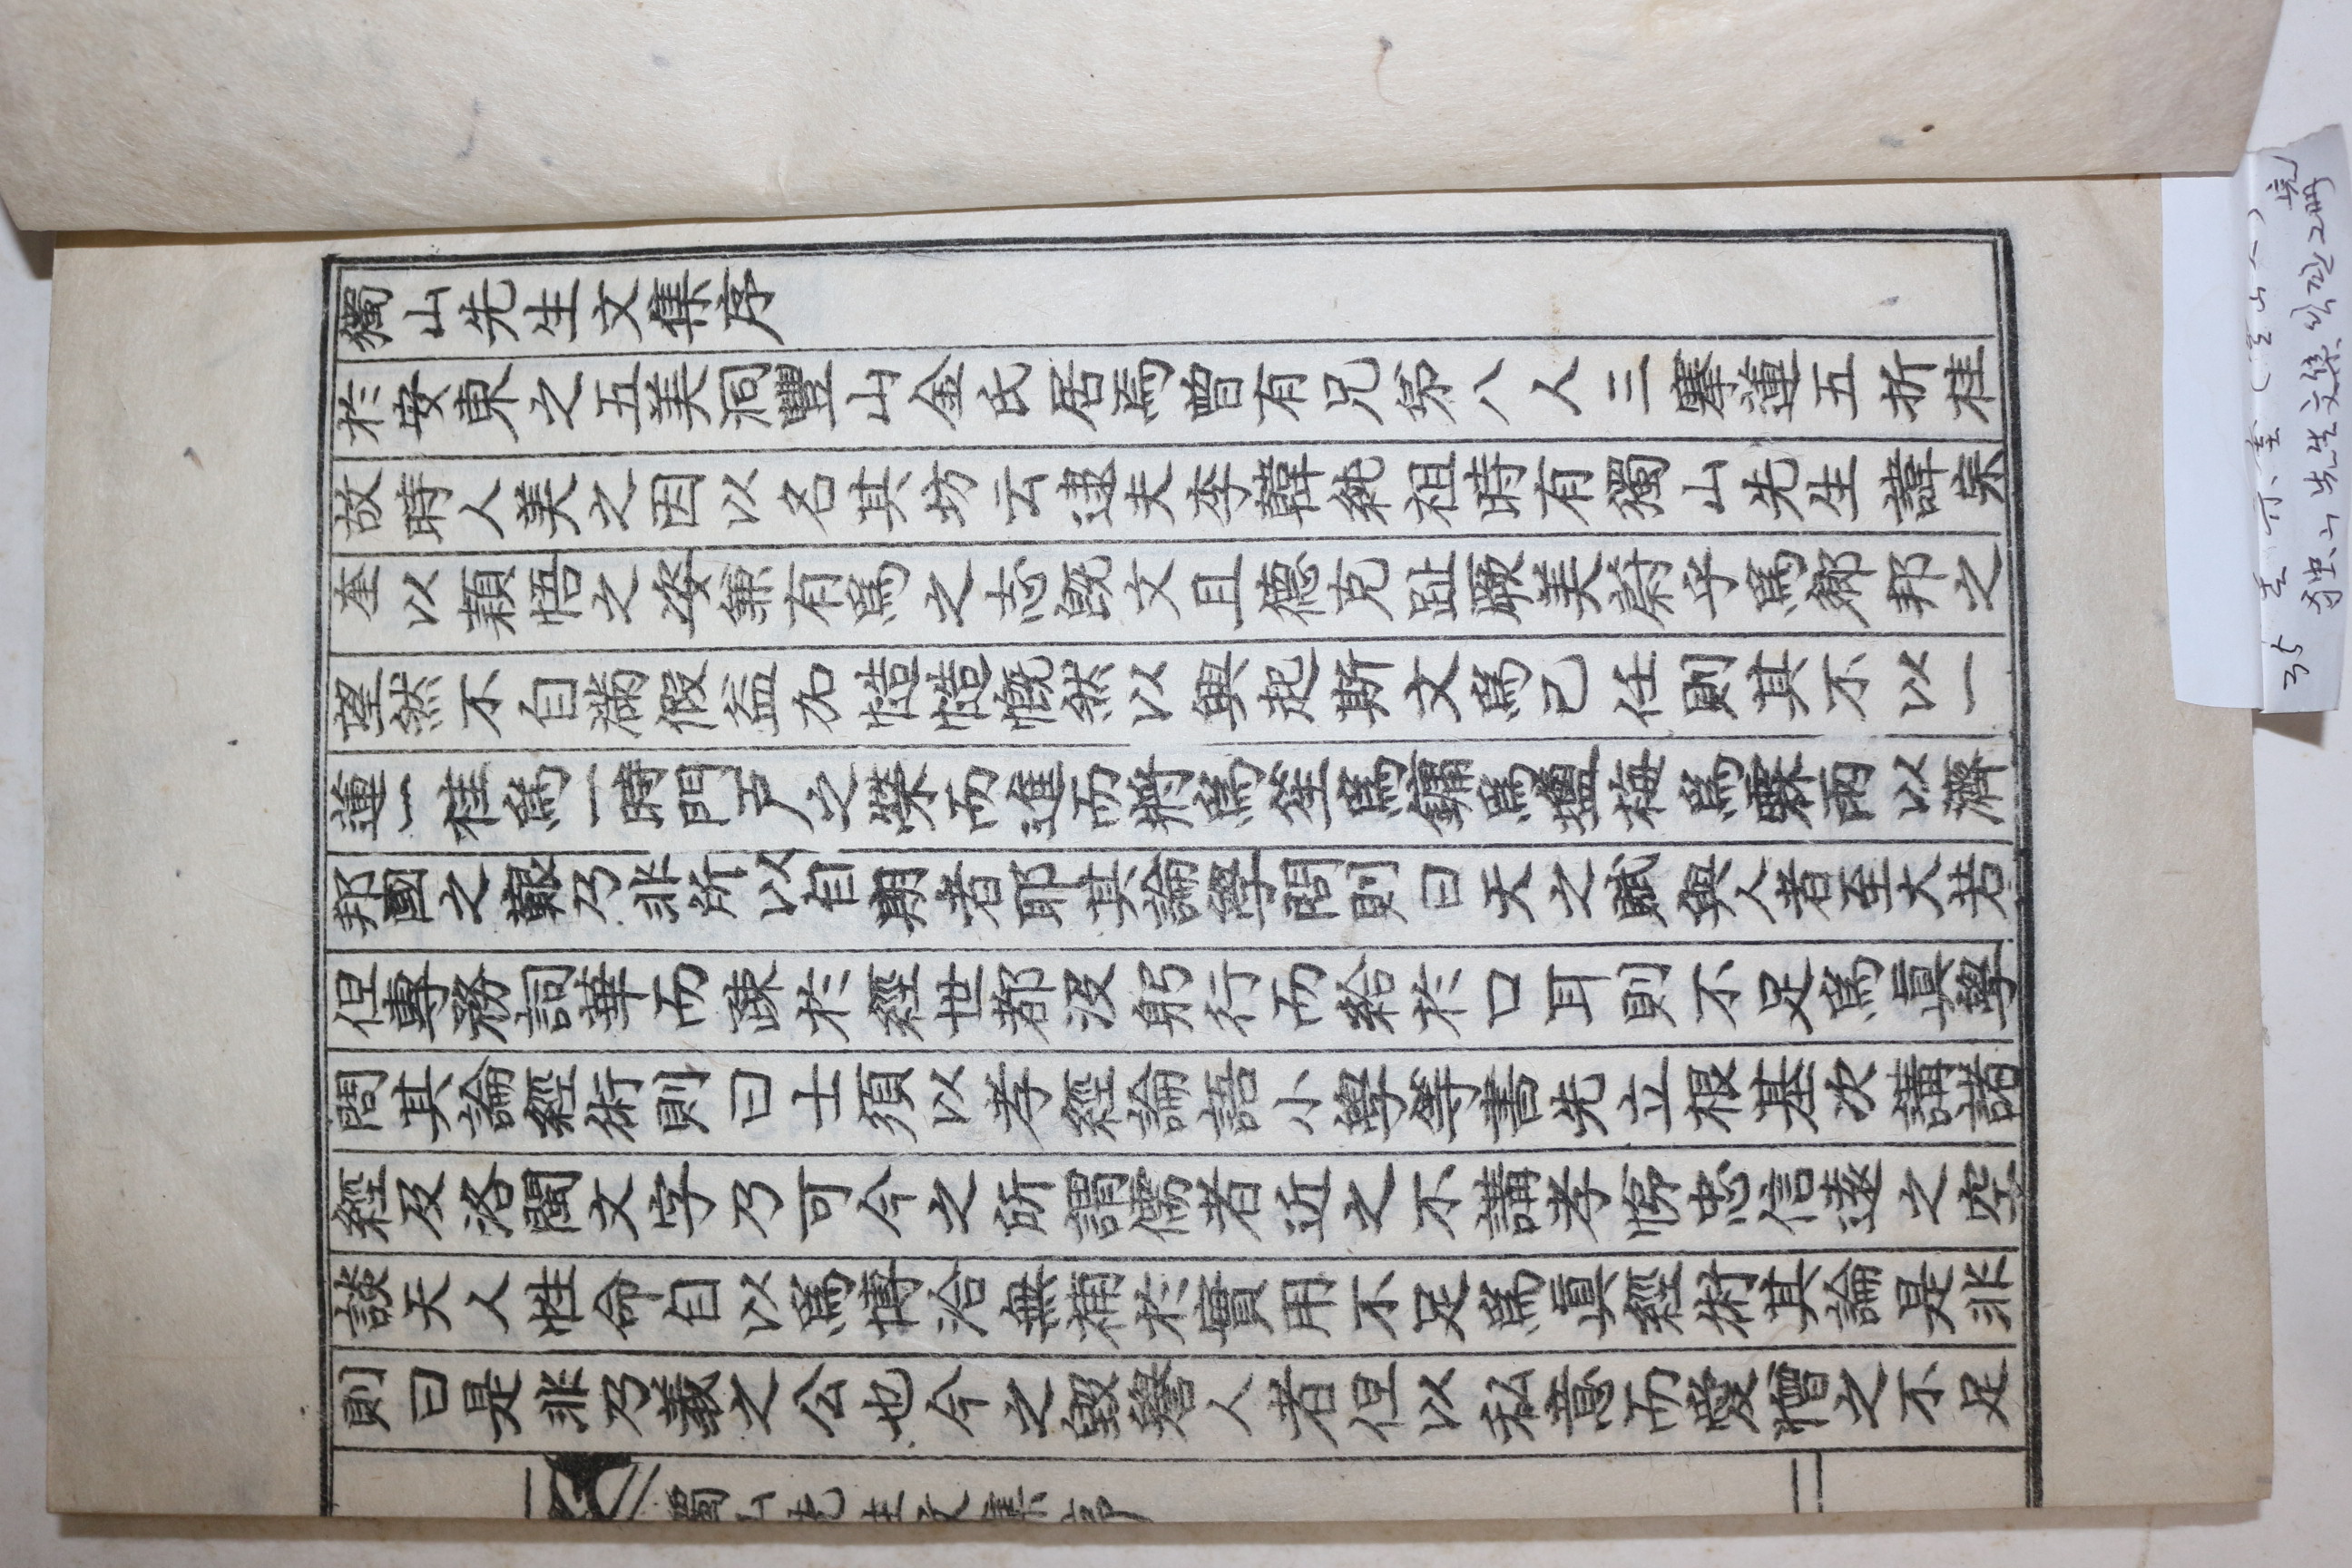 獨山先生文集序
於安東之五美洞豐山金氏居焉曾有兄弟八人三搴蓮五折桂
故時人美之因以名其坊云逮夫李韓純祖時有獨山先生諱宗
奎以穎悟之姿兼有爲之志旣文且德克趾厥美蔚乎爲鄕邦之
望然不自滿假益加慥慥慨然以興起斯文爲己任則其不以一
蓮一桂爲一時門戶之榮而進而將爲笙爲鏞爲鹽梅爲霖雨以濟
邦國之艱乃非所以自期者耶其論學問則曰天之賦與人者至大若
但專務詞華而疎於經世都沒躬行而給於口耳則不足爲眞學
問其論經術則曰士須以孝經論語小學等書先立根基次講諸
經及洛閩文字乃可今之所謂儒者近之不講孝悌忠信遠之空
談天人性命自以爲博洽無補於實用不足爲眞經術其論是非
則曰是非乃義之公也今之毀譽人者但以私意而愛憎之不足
獨山先生文集序
一
35
独山先生文集 석판 2冊